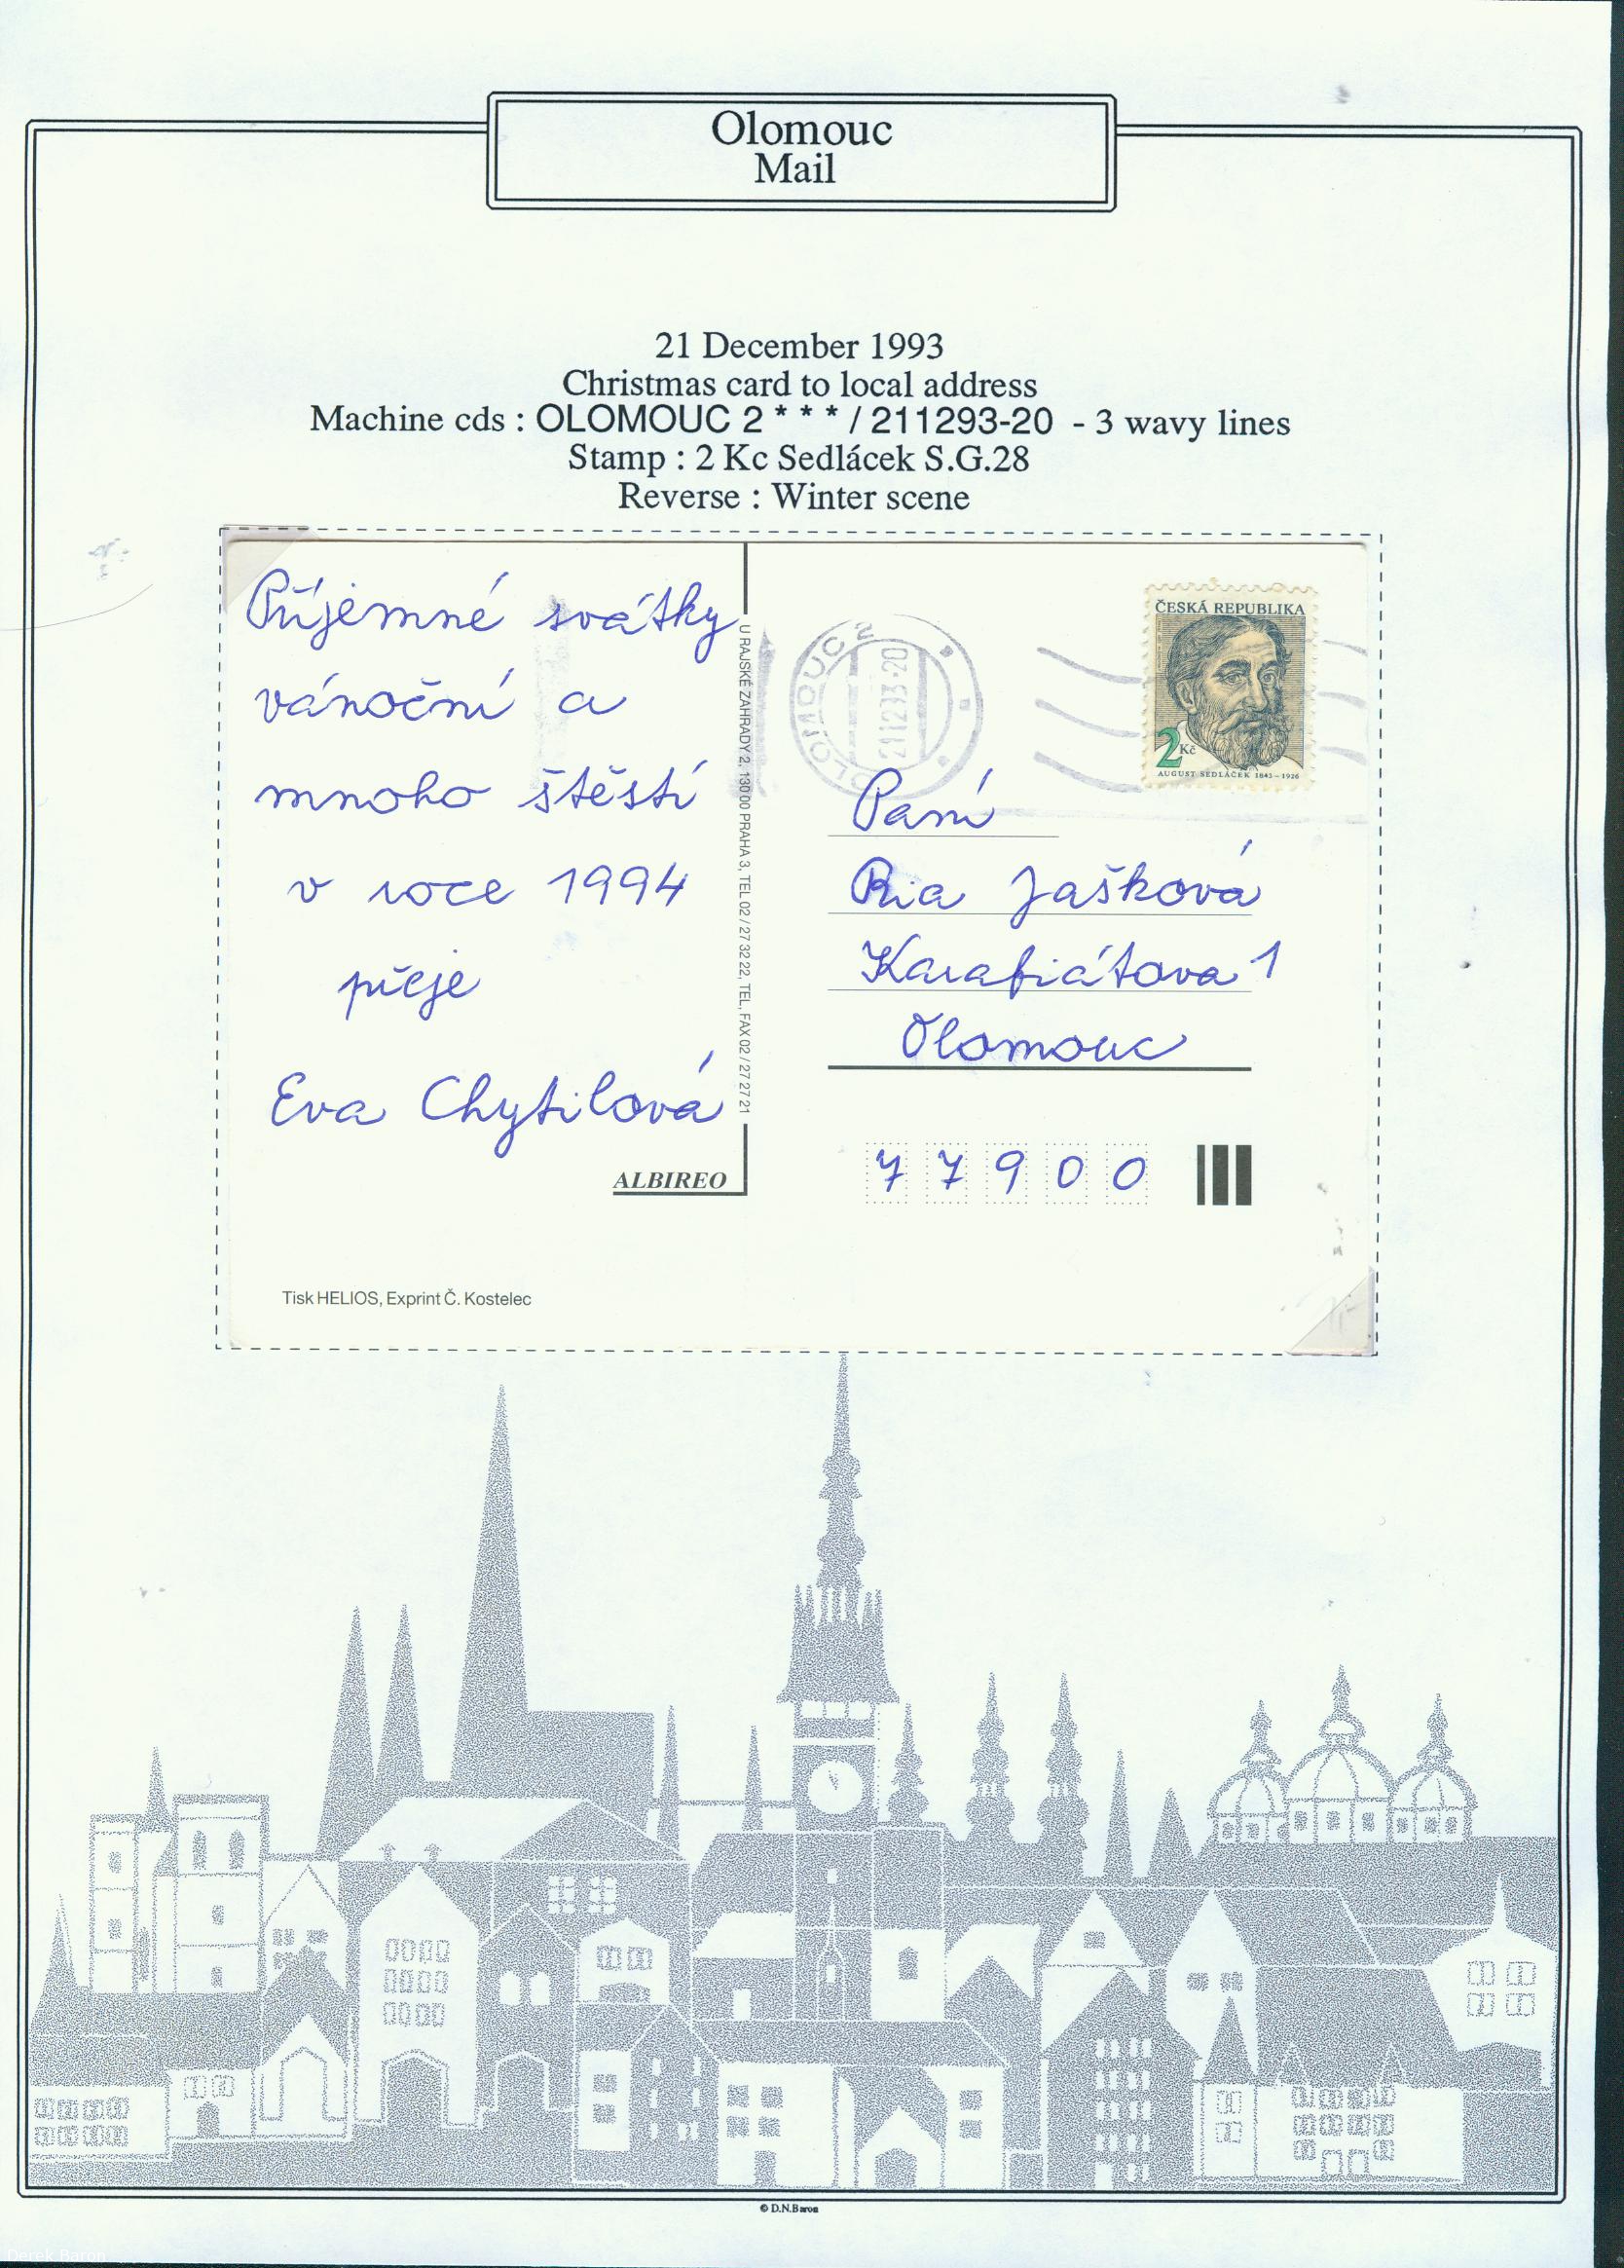 Olomouc
Mail
21 December 1993
Christmas card to local address
Machine cds : OLOMOUC 2 * * * / 211293-20 - 3 wavy lines
Stamp : 2 Kc Sedlácek S.G.28
Reverse : Winter scene
Příjemné svátky
vánoční a
mnoho štěstí
v roce 1994
přeje
Eva Chytilová
ALBIREO
Tisk HELIOS, Exprint Č. Kostelec
U RAJSKÉ ZAHRADY 2, 130 00 PRAHA 3, TEL 02 / 27 32 22, TEL, FAX 02 / 27 27 21
OLOMOUC 2
211293-20
ČESKÁ REPUBLIKA
2 Kč
AUGUST SEDLÁČEK 1843–1926
Paní
Ria Jašková
Karafiátova 1
Olomouc
77900
© D.N.Baron
Derek Baron